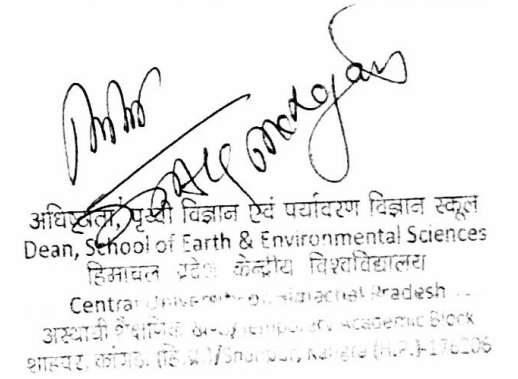 अधिष्ठाता, पृथ्वी विज्ञान एवं पर्यावरण विज्ञान स्कूल
Dean, School of Earth & Environmental Sciences
हिमाचल प्रदेश केन्द्रीय विश्वविद्यालय
Central University of Himachal Pradesh
अस्थायी शैक्षणिक Temporary Academic Block
शाहपुर, कांगड़ा (हि.प्र.)/Shahpur, Kangra (H.P.)-176206